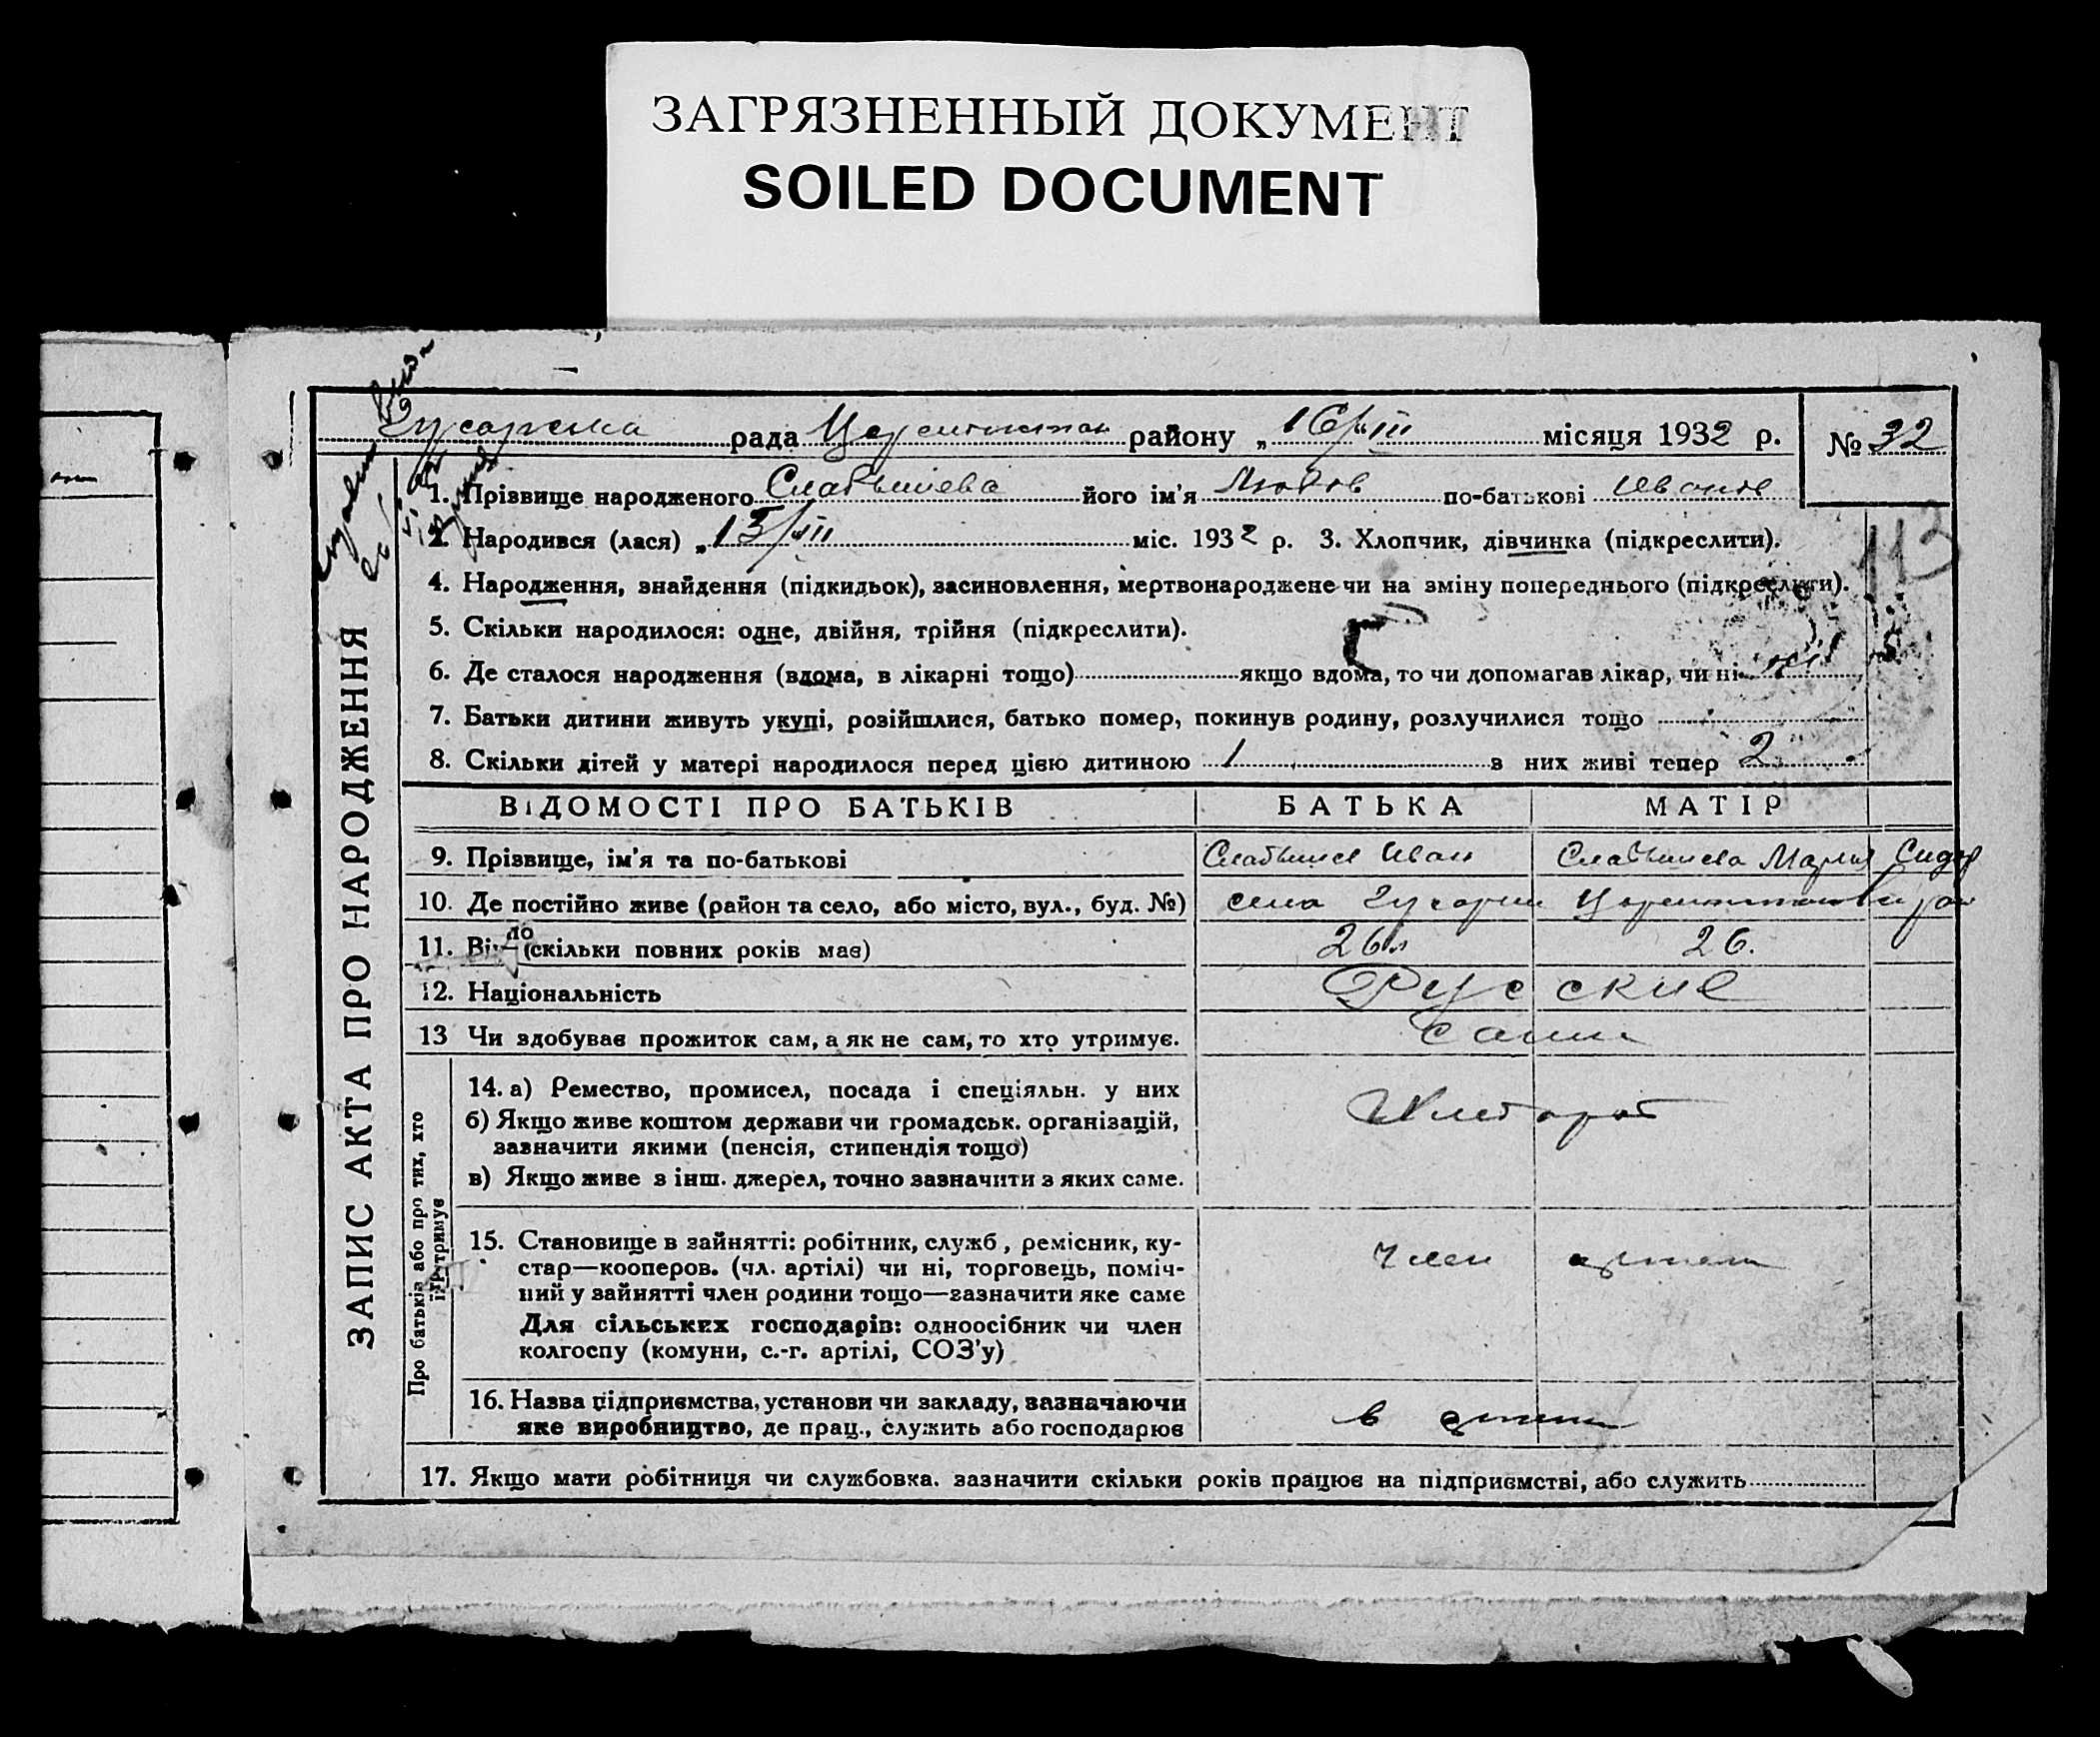 ЗАГРЯЗНЕННЫЙ ДОКУМЕНТ
SOILED DOCUMENT
рада району „16/III місяця 1932 р. № 32
113
ЗАПИС АКТА ПРО НАРОДЖЕННЯ
1. Прізвище народженого його ім'я Любов по-батькові Иванов
2. Народився (лася) „13/III міс. 1932 р. 3. Хлопчик, дівчинка (підкреслити).
4. Народження, знайдення (підкидьок), засиновлення, мертвонароджене чи на зміну попереднього (підкреслити).
5. Скільки народилося: одне, двійня, трійня (підкреслити).
6. Де сталося народження (вдома, в лікарні тощо) якщо вдома, то чи допомагав лікар, чи ні
7. Батьки дитини живуть укупі, розійшлися, батько помер, покинув родину, розлучилися тощо
8. Скільки дітей у матері народилося перед цією дитиною 1 в них живі тепер 2
ВІДОМОСТІ ПРО БАТЬКІВ БАТЬКА МАТІР
9. Прізвище, ім'я та по-батькові Иван Мария Сидор
10. Де постійно живе (район та село, або місто, вул., буд. №) села
11. (скільки повних років має) 26 л 26.
12. Національність Русские
13 Чи здобуває прожиток сам, а як не сам, то хто утримує. Сами
Про батьків або про тих, хто
їх утримує
14. а) Ремество, промисел, посада і спеціяльн. у них
б) Якщо живе коштом держави чи громадськ. організацій,
зазначити якими (пенсія, стипендія тощо)
в) Якщо живе з інш. джерел, точно зазначити з яких саме.
Хлебороб
15. Становище в зайнятті: робітник, служб., ремісник, ку-
стар—кооперов. (чл. артілі) чи ні, торговець, поміч-
ний у зайнятті член родини тощо—зазначити яке саме
Для сільських господарів: одноосібник чи член
колгоспу (комуни, с.-г. артілі, СОЗ'у)
Член артели
16. Назва підприємства, установи чи закладу, зазначаючи
яке виробництво, де прац., служить або господарює
в
17. Якщо мати робітниця чи службовка. зазначити скільки років працює на підприємстві, або служить